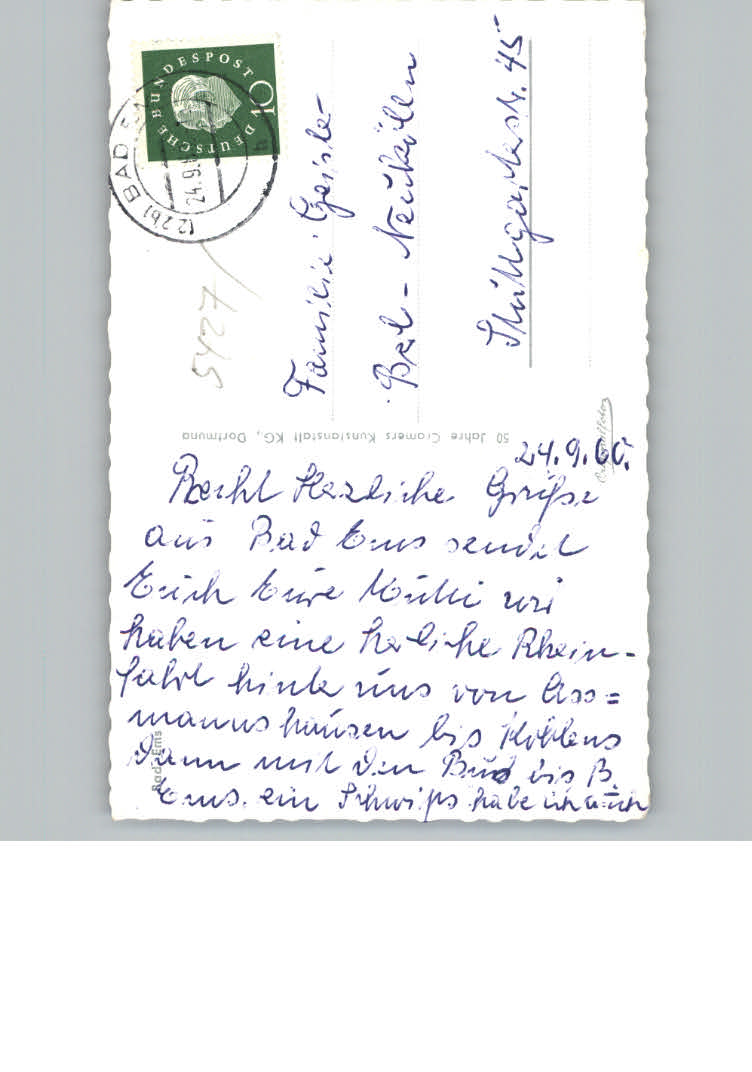 DEUTSCHE BUNDESPOST
10
(22b) BAD EM
24.9.6
5427
Familie Geisle-
Bel - Neukölln
Stuttgartestr. 45
50 Jahre Cramers Kunstanstalt KG, Dortmund
24.9.60.
Recht Herzliche Grüße
aus Bad Ems sendet
Euch Eure Mutti wir
haben eine herliche Rhein-
fahrt hinte uns von Ass=
mannshausen bis Koblens
dann mit den Bus bis B.
Ems. ein Schwips habe ich auch
Bad Ems